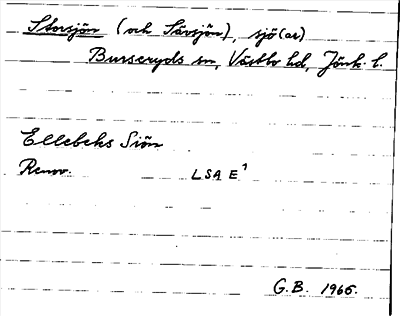 Storsjön (och Sävsjön), sjö(ar)
Burseryds sn, Västbo hd, Jönk. l.
Ellebeks Siön
Renov. LSA E¹
G.B. 1966.